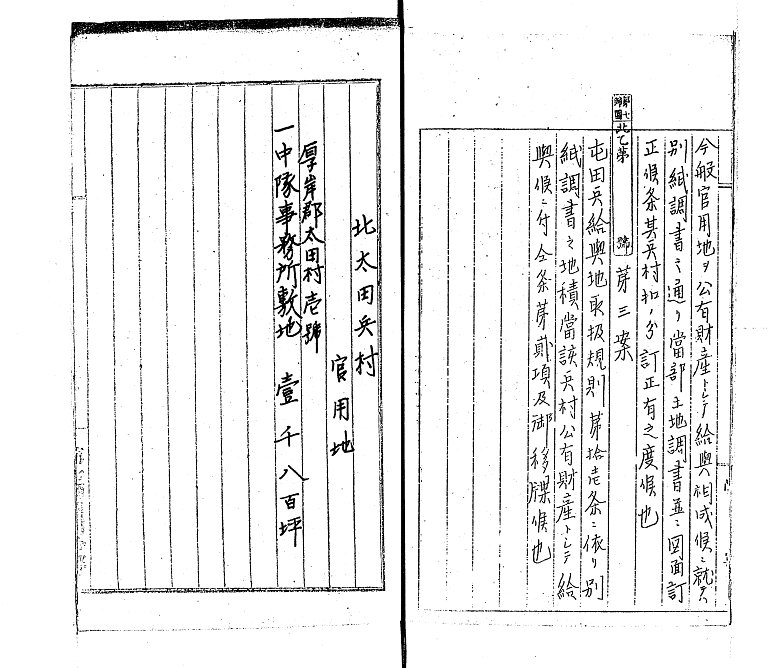 今般官用地ヲ公有財産トシテ給與相成候ニ就テハ
別紙調書之通リ當部土地調書並ニ図面訂
正候条其兵村扣ノ分訂正有之度候也
北乙第 號 第三案
屯田兵給與地取扱規則第拾壱条ニ依リ別
紙調書之地積當該兵村公有財産トシテ給
與候ニ付仝条第貳項及御移牒候也
北太田兵村
官用地
厚岸郡太田村壱號
一中隊事務所敷地 壹千八百坪